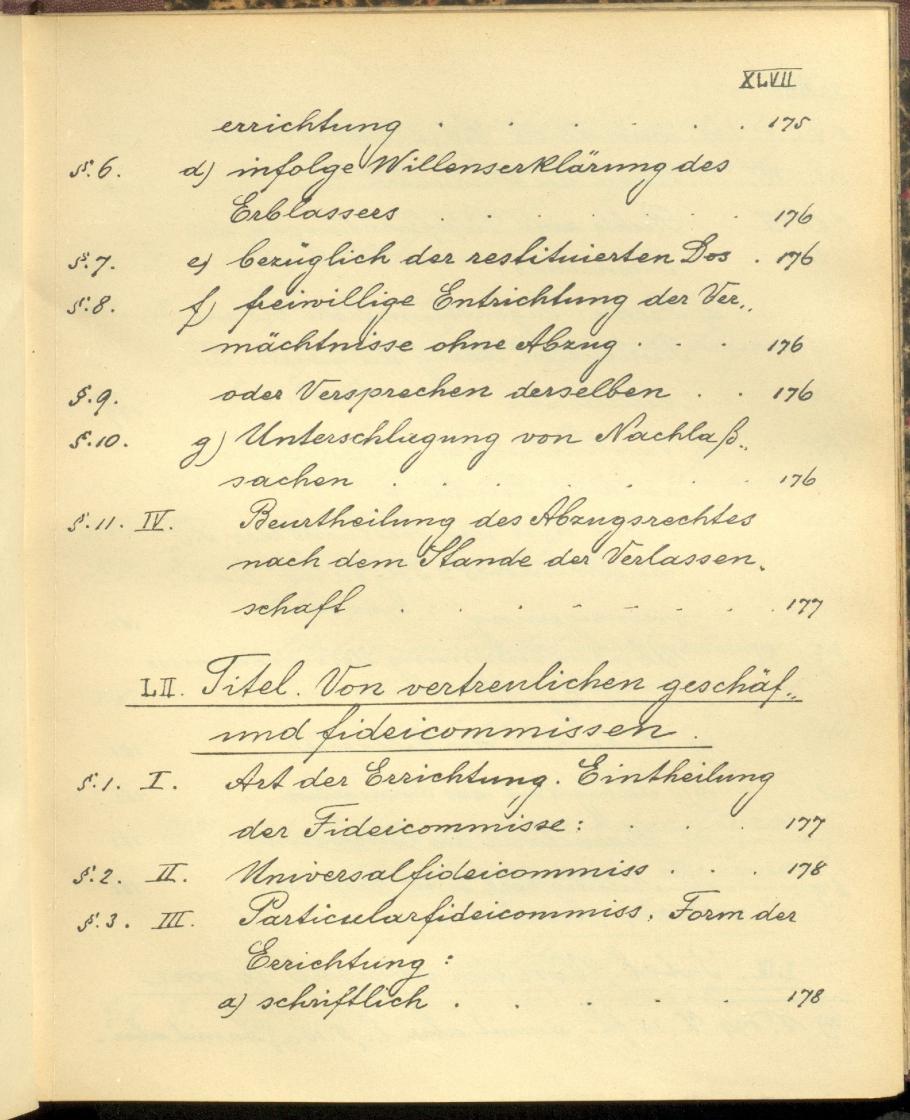 XLVII
errichtung . . . . . 175
§. 6. d) infolge Willenserklärung des
Erblassers . . . . 176
§. 7. e) bezüglich der restituierten Dos . 176
§. 8. f) freiwillige Entrichtung der Ver„
mächtnisse ohne Abzug . . . 176
§. 9. oder Versprechen derselben . . 176
§. 10. g) Unterschlagung von Nachlaß„
sachen . . . . . 176
§. 11. IV. Beurtheilung des Abzugsrechtes
nach dem Stande der Verlassen„
schaft . . . . . . . 177
LII. Titel. Von vertreulichen geschäf„
und fideicommissen.
§. 1. I. Art der Errichtung. Eintheilung
der Fideicommisse: . . . 177
§. 2. II. Universalfideicommiss . . . 178
§. 3. III. Particularfideicommiss. Form der
Errichtung:
a) schriftlich . . . . . 178